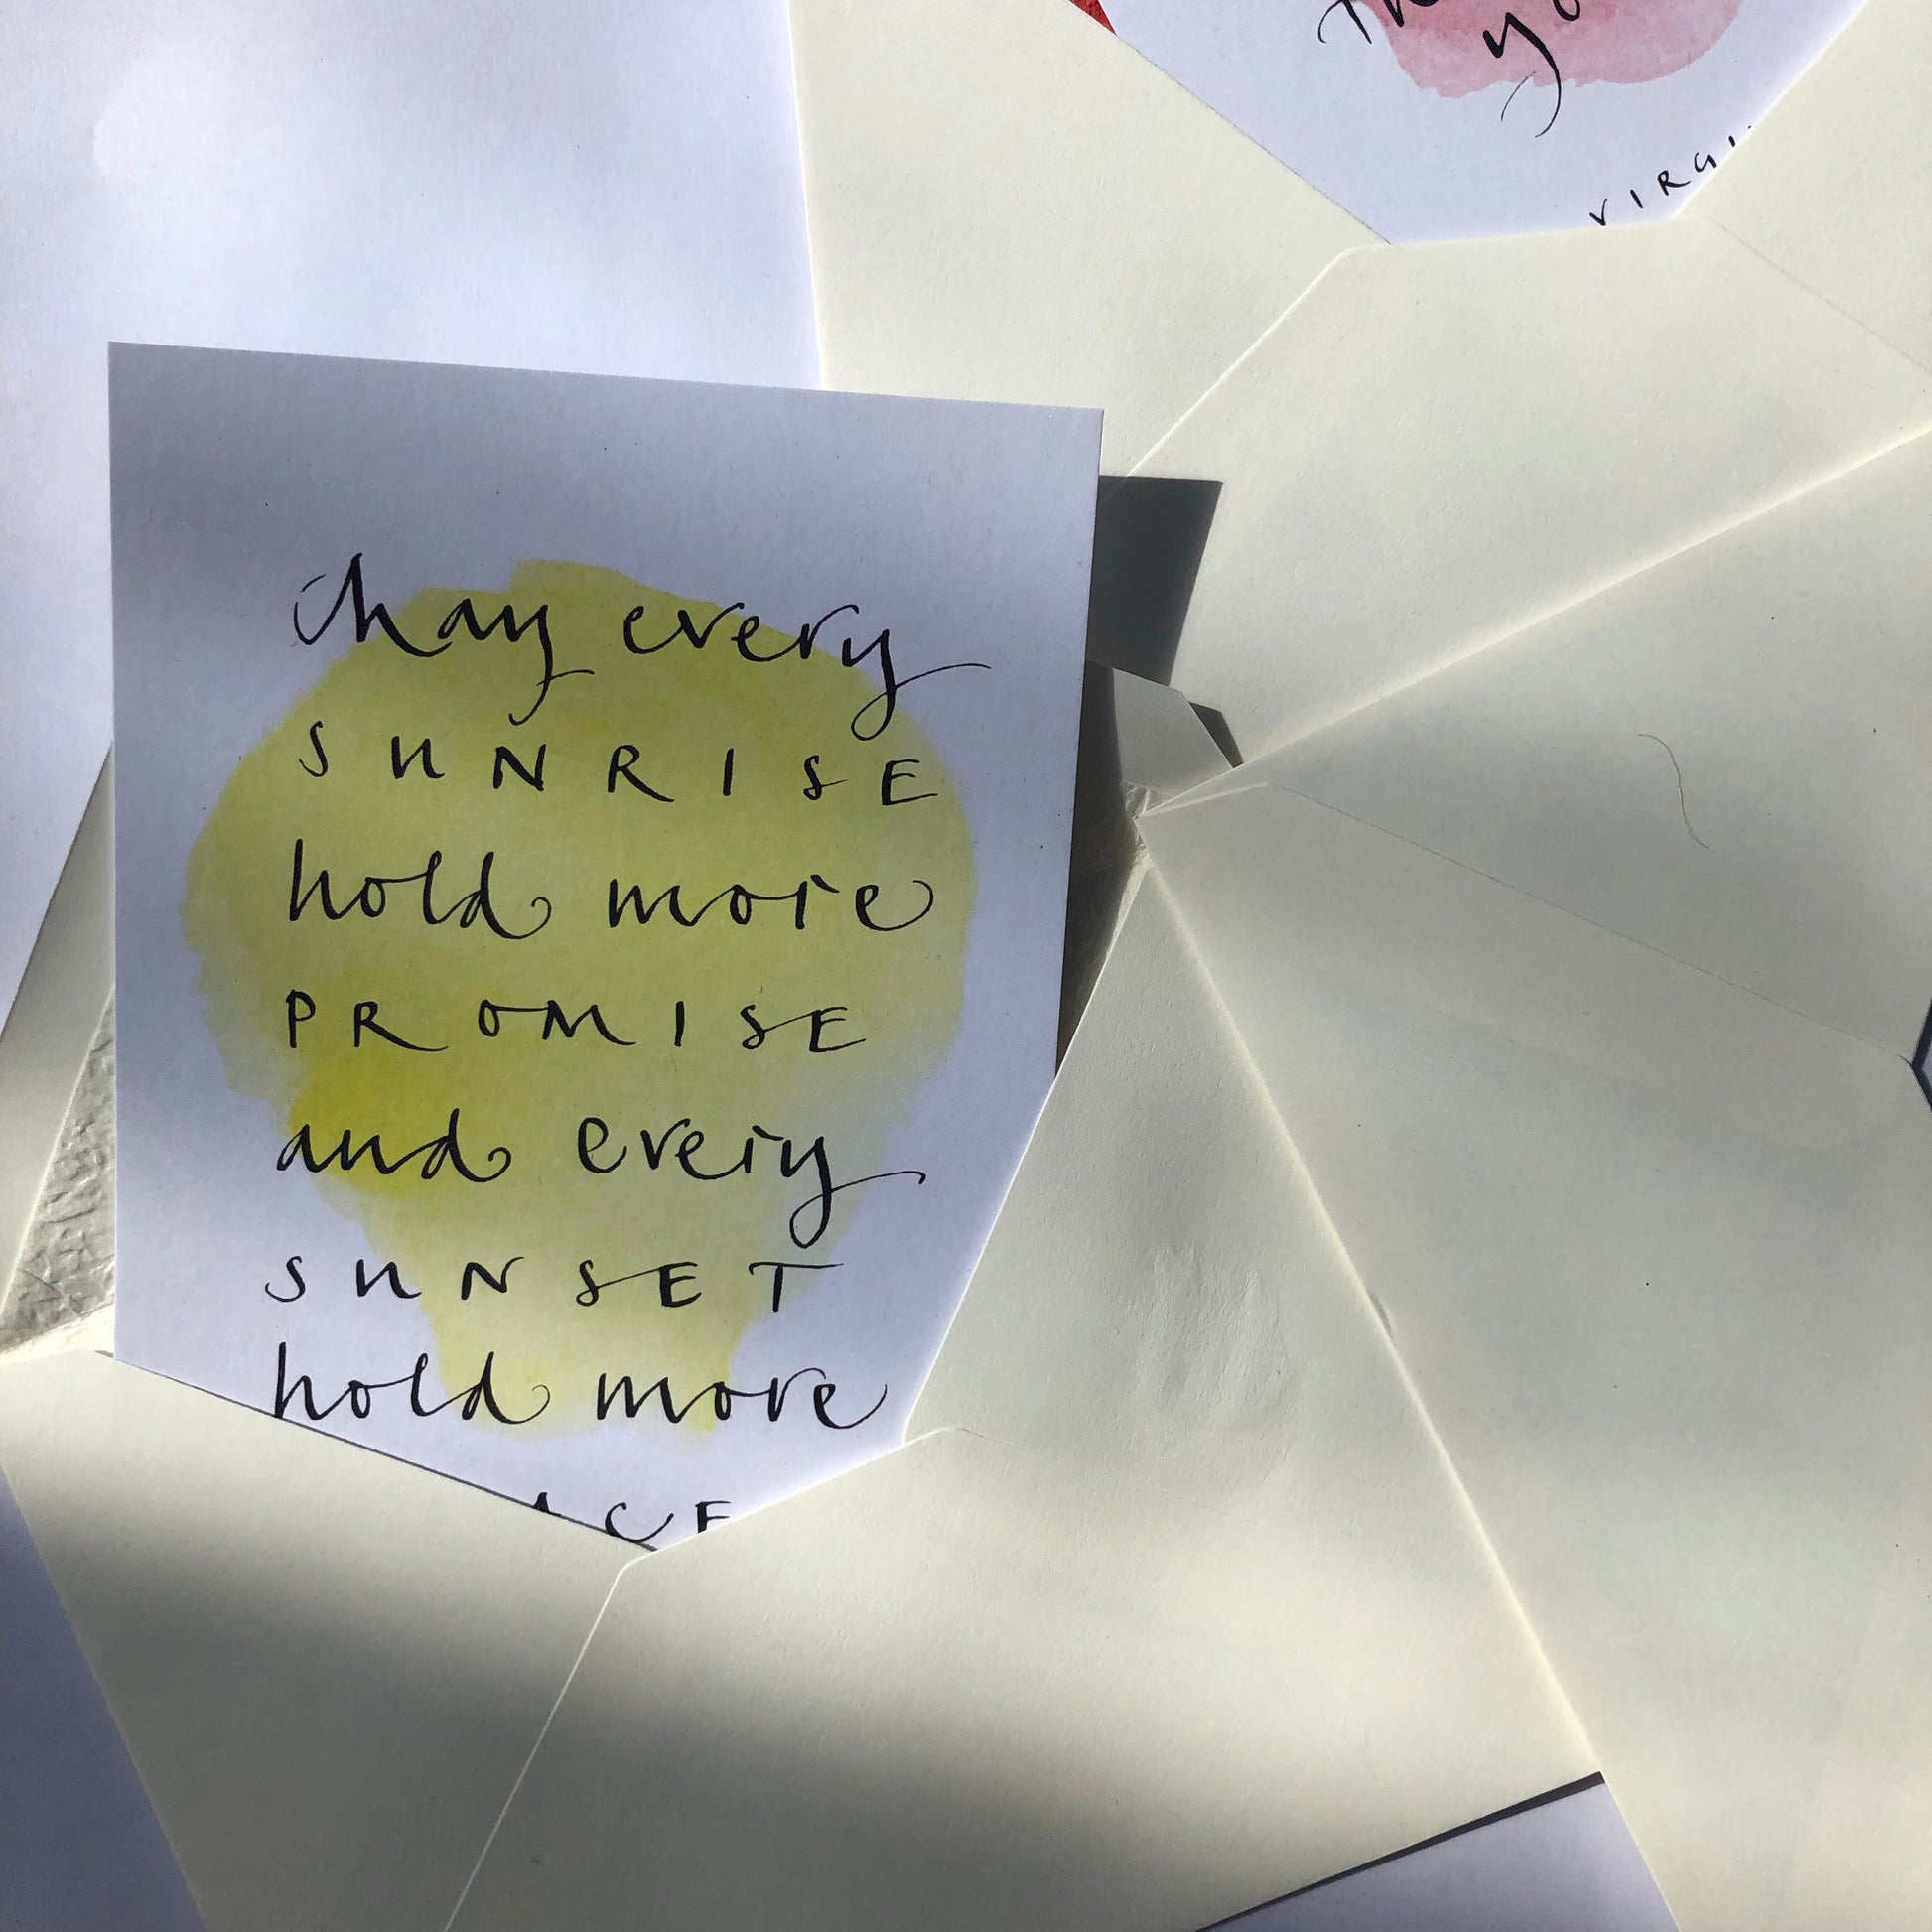 yo
May every
SUNRISE
hold more
PROMISE
and every
SUNSET
hold more